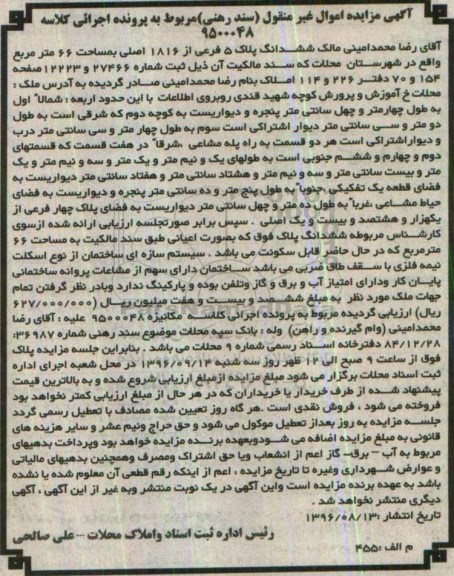 آگهی مزایده اموال غیر منقول (سند رهنی)مربوط به پرونده اجرائی کلاسه
۹۵۰۰۰۴۸
آقای رضا محمدامینی مالک ششدانگ پلاک ۵ فرعی از ۱۸۱۶ اصلی بمساحت ۶۶ متر مربع
واقع در شهرستان محلات که سند مالکیت آن ذیل ثبت شماره ۲۷۴۶۶ و ۱۲۲۲۳صفحه
۱۵۴ و ۷۰ دفتر ۲۲۶ و ۱۱۴ املاک بنام رضا محمدامینی صادر گردیده به آدرس ملک :
محلات خ آموزش و پرورش کوچه شهید قندی روبروی اطلاعات با این حدود اربعه : شمالاً اول
به طول چهارمتر و چهل سانتی متر پنجره و دیواریست به کوچه دوم که شرقی است به طول
دو متر و سی سانتی متر دیوار اشتراکی است سوم به طول چهار متر و سی سانتی متر درب
و دیواراشتراکی است هر دو قسمت به راه پله مشاعی ،شرقاً در هفت قسمت که قسمتهای
دوم و چهارم و ششم جنوبی است به طولهای یک و نیم متر و یک متر و سه و نیم متر و یک
متر و بیست سانتی متر و سه و نیم متر و هشتاد سانتی متر و هفتاد سانتی متر دیواریست به
فضای قطعه یک تفکیکی ،جنوباً به طول پنج متر و ده سانتی متر پنجره و دیواریست به فضای
حیاط مشاعی ،غرباً به طول ده متر و چهل سانتی متر دیواریست به فضای پلاک چهار فرعی از
یکهزار و هشتصد و بیست و یک اصلی . سپس برابر صورتجلسه ارزیابی ارائه شده ازسوی
کارشناس مربوطه ششدانگ پلاک فوق که بصورت اعیانی طبق سند مالکیت به مساحت ۶۶
مترمربع که در حال حاضر قابل سکونت می باشد . سیستم سازه ای ساختمان از نوع اسکلت
نیمه فلزی با سقف طاق ضربی می باشد ساختمان دارای سهم از مشاعات پروانه ساختمانی
پایان کار ودارای امتیاز آب و برق و گاز وتلفن بوده و پارکینگ ندارد وبادر نظر گرفتن تمام
جهات ملک مورد نظر به مبلغ ششصد و بیست و هفت میلیون ریال (۶۲۷/۰۰۰/۰۰۰
ریال) ارزیابی گردیده مربوط به پرونده اجرائی کلاسه مکانیزه ۹۵۰۰۰۴۸ علیه : آقای رضا
محمدامینی (وام گیرنده و راهن) وله : بانک سپه محلات موضوع سند رهنی شماره ۳۶۹۸۷:
۸۴/۱۲/۲۸ دفترخانه اسناد رسمی شماره ۹ محلات می باشد . بنابراین جلسه مزایده پلاک
فوق از ساعت ۹ صبح الی ۱۲ ظهر روز سه شنبه ۱۳۹۶/۰۹/۱۴ در محل شعبه اجرای اداره
ثبت اسناد محلات برگزار می شود مبلغ مزایده ازمبلغ ارزیابی شروع شده و به بالاترین قیمت
پیشنهاد شده از طرف خریدار یا خریداران که در هر حال از مبلغ ارزیابی کمتر نخواهد بود
فروخته می شود ، فروش نقدی است .هر گاه روز تعیین شده مصادف با تعطیل رسمی گردد
جلسه مزایده به روز بعداز تعطیل موکول می شود و حق حراج ونیم عشر و سایر هزینه های
قانونی به مبلغ مزایده اضافه می شودوبعهده برنده مزایده خواهد بود وپرداخت بدهیهای
مربوط به آب – برق– گاز اعم از انشعاب ویا حق اشتراک ومصرف وهمچنین بدهیهای مالیاتی
و عوارض شهرداری وغیره تا تاریخ مزایده ، اعم از اینکه رقم قطعی آن معلوم شده یا نشده
باشد به عهده برنده مزایده است واین آگهی در یک نوبت منتشر وبه غیر از این آگهی ، آگهی
دیگری منتشر نخواهد شد .
تاریخ انتشار :۱۳۹۶/۰۸/۱۳
رئیس اداره ثبت اسناد واملاک محلات – علی صالحی
م الف :۴۵۵